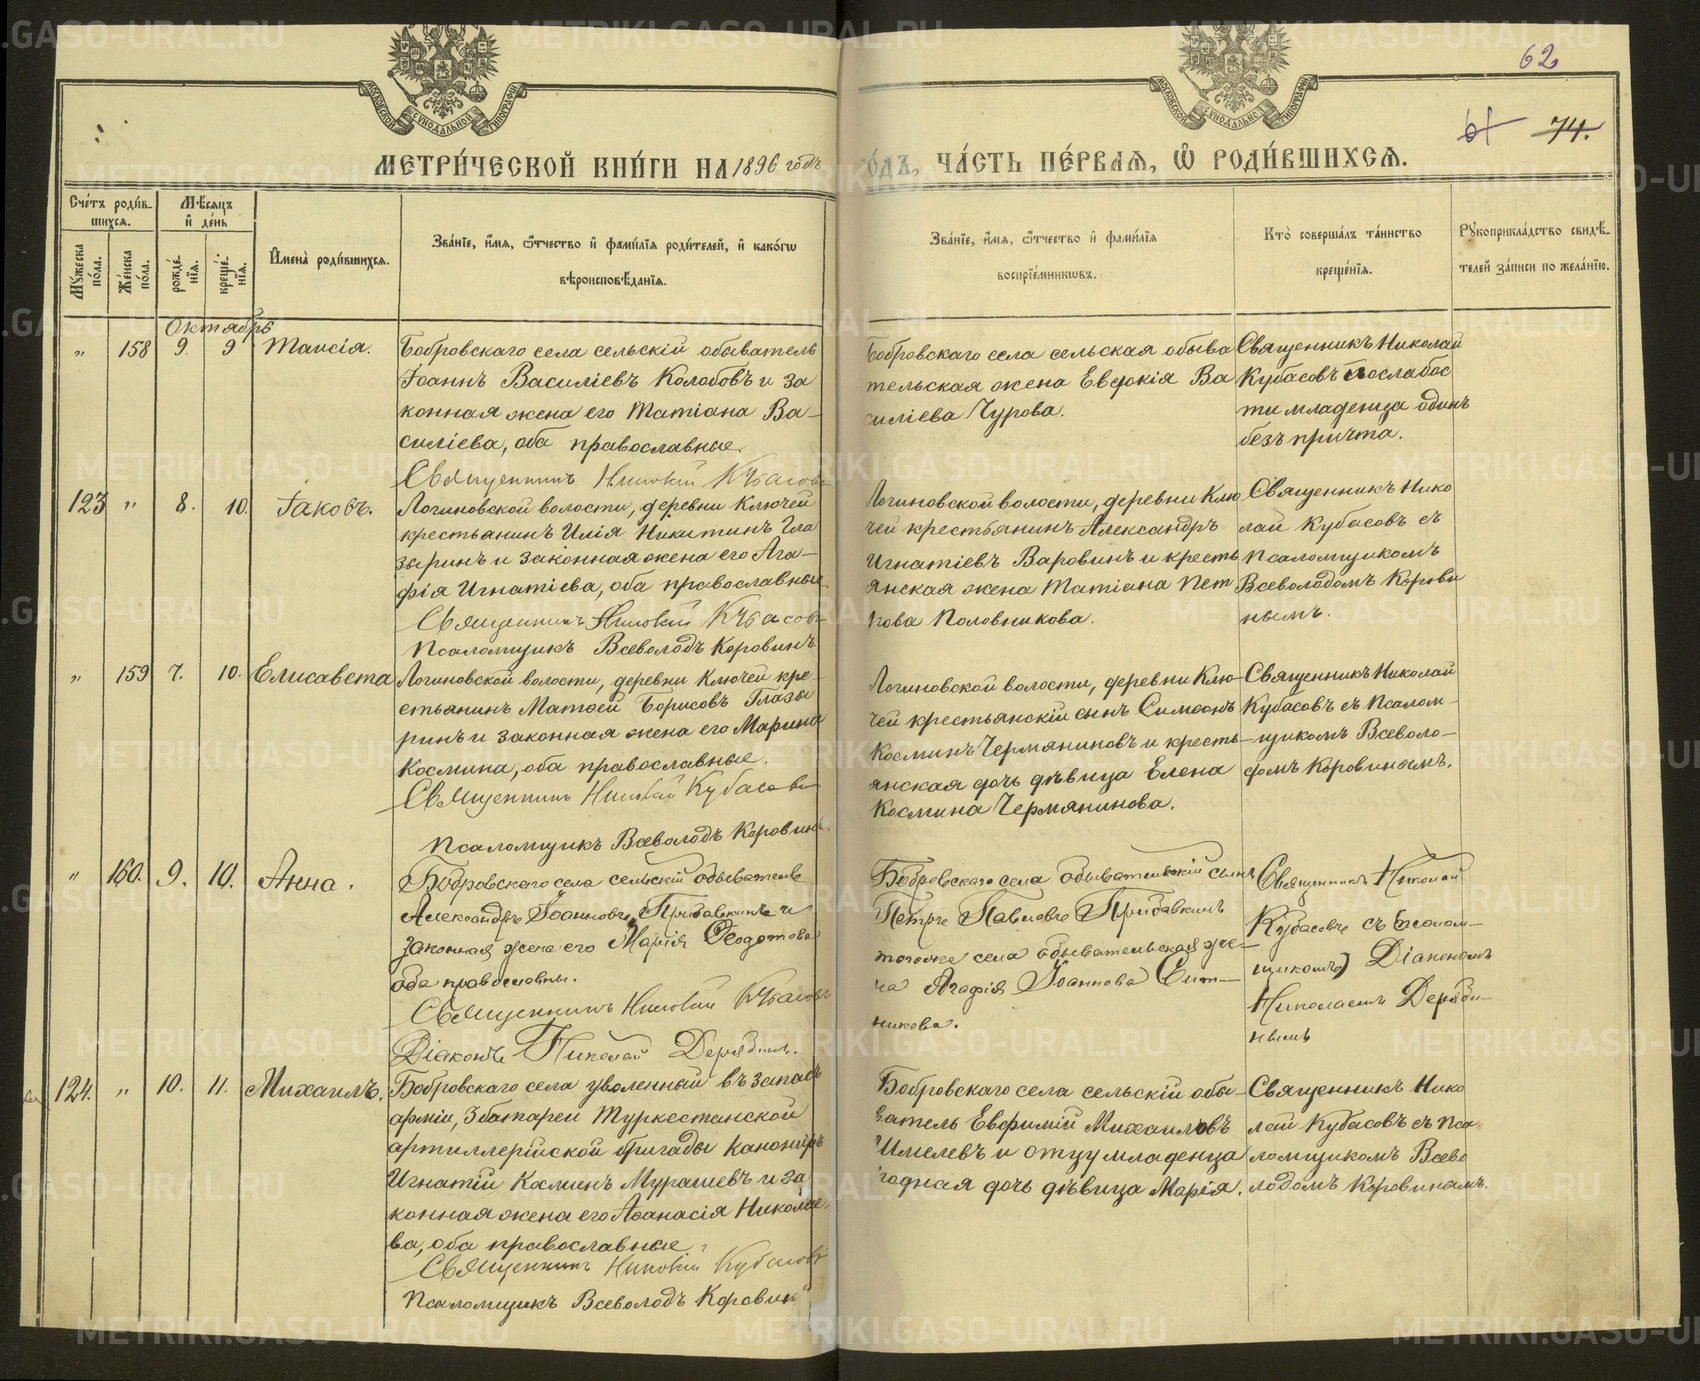 62
61 74.
МОСКОВСКОЙ СѴНОДАЛЬНОЙ ТИПОГРАФІИ
МОСКОВСКОЙ СѴНОДАЛЬНОЙ ТИПОГРАФІИ
МЕТРИ́ЧЕСКОЙ КНИ́ГИ НА 1896 годъ
ГО́ДЪ, ЧА́СТЬ ПЕ́РВАЯ, Ѽ РОДИ́ВШИХСЯ.
Сче́тъ роди́в-
шихся.
Мѣ́сяцъ
и҆ де́нь
Му́жеска по́ла.
Же́нска по́ла.
рожде́нія.
креще́нія.
И҆мена̀ роди́вшихся.
Зва́нїе, и҆́мя, ѻ҆́тчество и҆ фами́лїя роди́телей, и҆ како́гѡ
вѣроисповѣ́данїя.
Зва́нїе, и҆́мя, ѻ҆́тчество и҆ фами́лїя
воспрїе́мникѡвъ.
Кто̀ соверша́лъ та́инство
креще́нїя.
Рꙋкоприкла́дство свидѣ́-
телей за́писи по жела́нїю.
Октябрь
„ 158 9. 9 Таисія.
Бобровскаго села сельскій обыватель
Іоаннъ Василіевъ Колобовъ и за
конная жена его Татіана Ва-
силіева, оба православные.
Священникъ Николай Кубасовъ
Бобровскаго села сельская обыва
тельская жена Евдокія Ва
силіева Чурова.
Священникъ Николай
Кубасовъ по слабос
ти младенца одинъ
безъ причта.
123 „ 8. 10. Іаковъ.
Логиновской волости, деревни Ключей
крестьянинъ Илія Никитинъ Гла
зыринъ и законная жена его Ага-
фія Игнатіева, оба православные.
Священникъ Николай Кубасовъ
Псаломщикъ Всеволодъ Коровинъ
Логиновской волости, деревни Клю
чей крестьянинъ Александръ
Игнатіевъ Варовинъ и кресть
янская жена Татіана Пет
рова Половникова.
Священникъ Нико
лай Кубасовъ съ
псаломщикомъ
Всеволодомъ Корови
нымъ.
„ 159 7. 10. Елисавета
Логиновской волости, деревни Ключей кре-
стьянинъ Матѳей Борисовъ Глазы
ринъ и законная жена его Марина
Космина, оба православные.
Священникъ Николай Кубасовъ
Псаломщикъ Всеволодъ Коровинъ.
Логиновской волости, деревни Клю-
чей крестьянскій сынъ Симеонъ
Косминъ Черемяниновъ и кресть-
янская дочь дѣвица Елена
Космина Чермянинова.
Священникъ Николай
Кубасовъ съ псалом-
щикомъ Всеволо-
домъ Коровинымъ.
„ 160. 9. 10. Анна.
Бобровскаго села сельскій обыватель
Александръ Іоанновъ Прибавкинъ и
законная жена его Марія Ѳеодотова
оба православны.
Священникъ Николай Кубасовъ
Діаконъ Николай Дерябинъ.
Бобровскаго села обывательскій сынъ
Петръ Павловъ Прибавкинъ
тогоже села обывательская же-
на Агафія Іоаннова Сит-
никова.
Священникъ Николай
Кубасовъ съ (псалом-
щикомъ) Діакономъ
Николаемъ Деряби-
нымъ
124. „ 10. 11. Михаилъ.
Бобровскаго села уволенный въ запасъ
арміи, 3 батареи Туркестанской
артиллерійской бригады канониръ
Игнатій Косминъ Мурашевъ и за
конная жена его Аѳанасія Николае-
ва, оба православные.
Священникъ Николай Кубасовъ
Псаломщикъ Всеволодъ Коровинъ
Бобровскаго села сельскій обы-
ватель Евфимій Михаиловъ
Шмелевъ и отцу младенца
родная дочь дѣвица Марія.
Священникъ Нико
лай Кубасовъ съ пса
ломщикомъ Всево
лодомъ Коровинымъ.